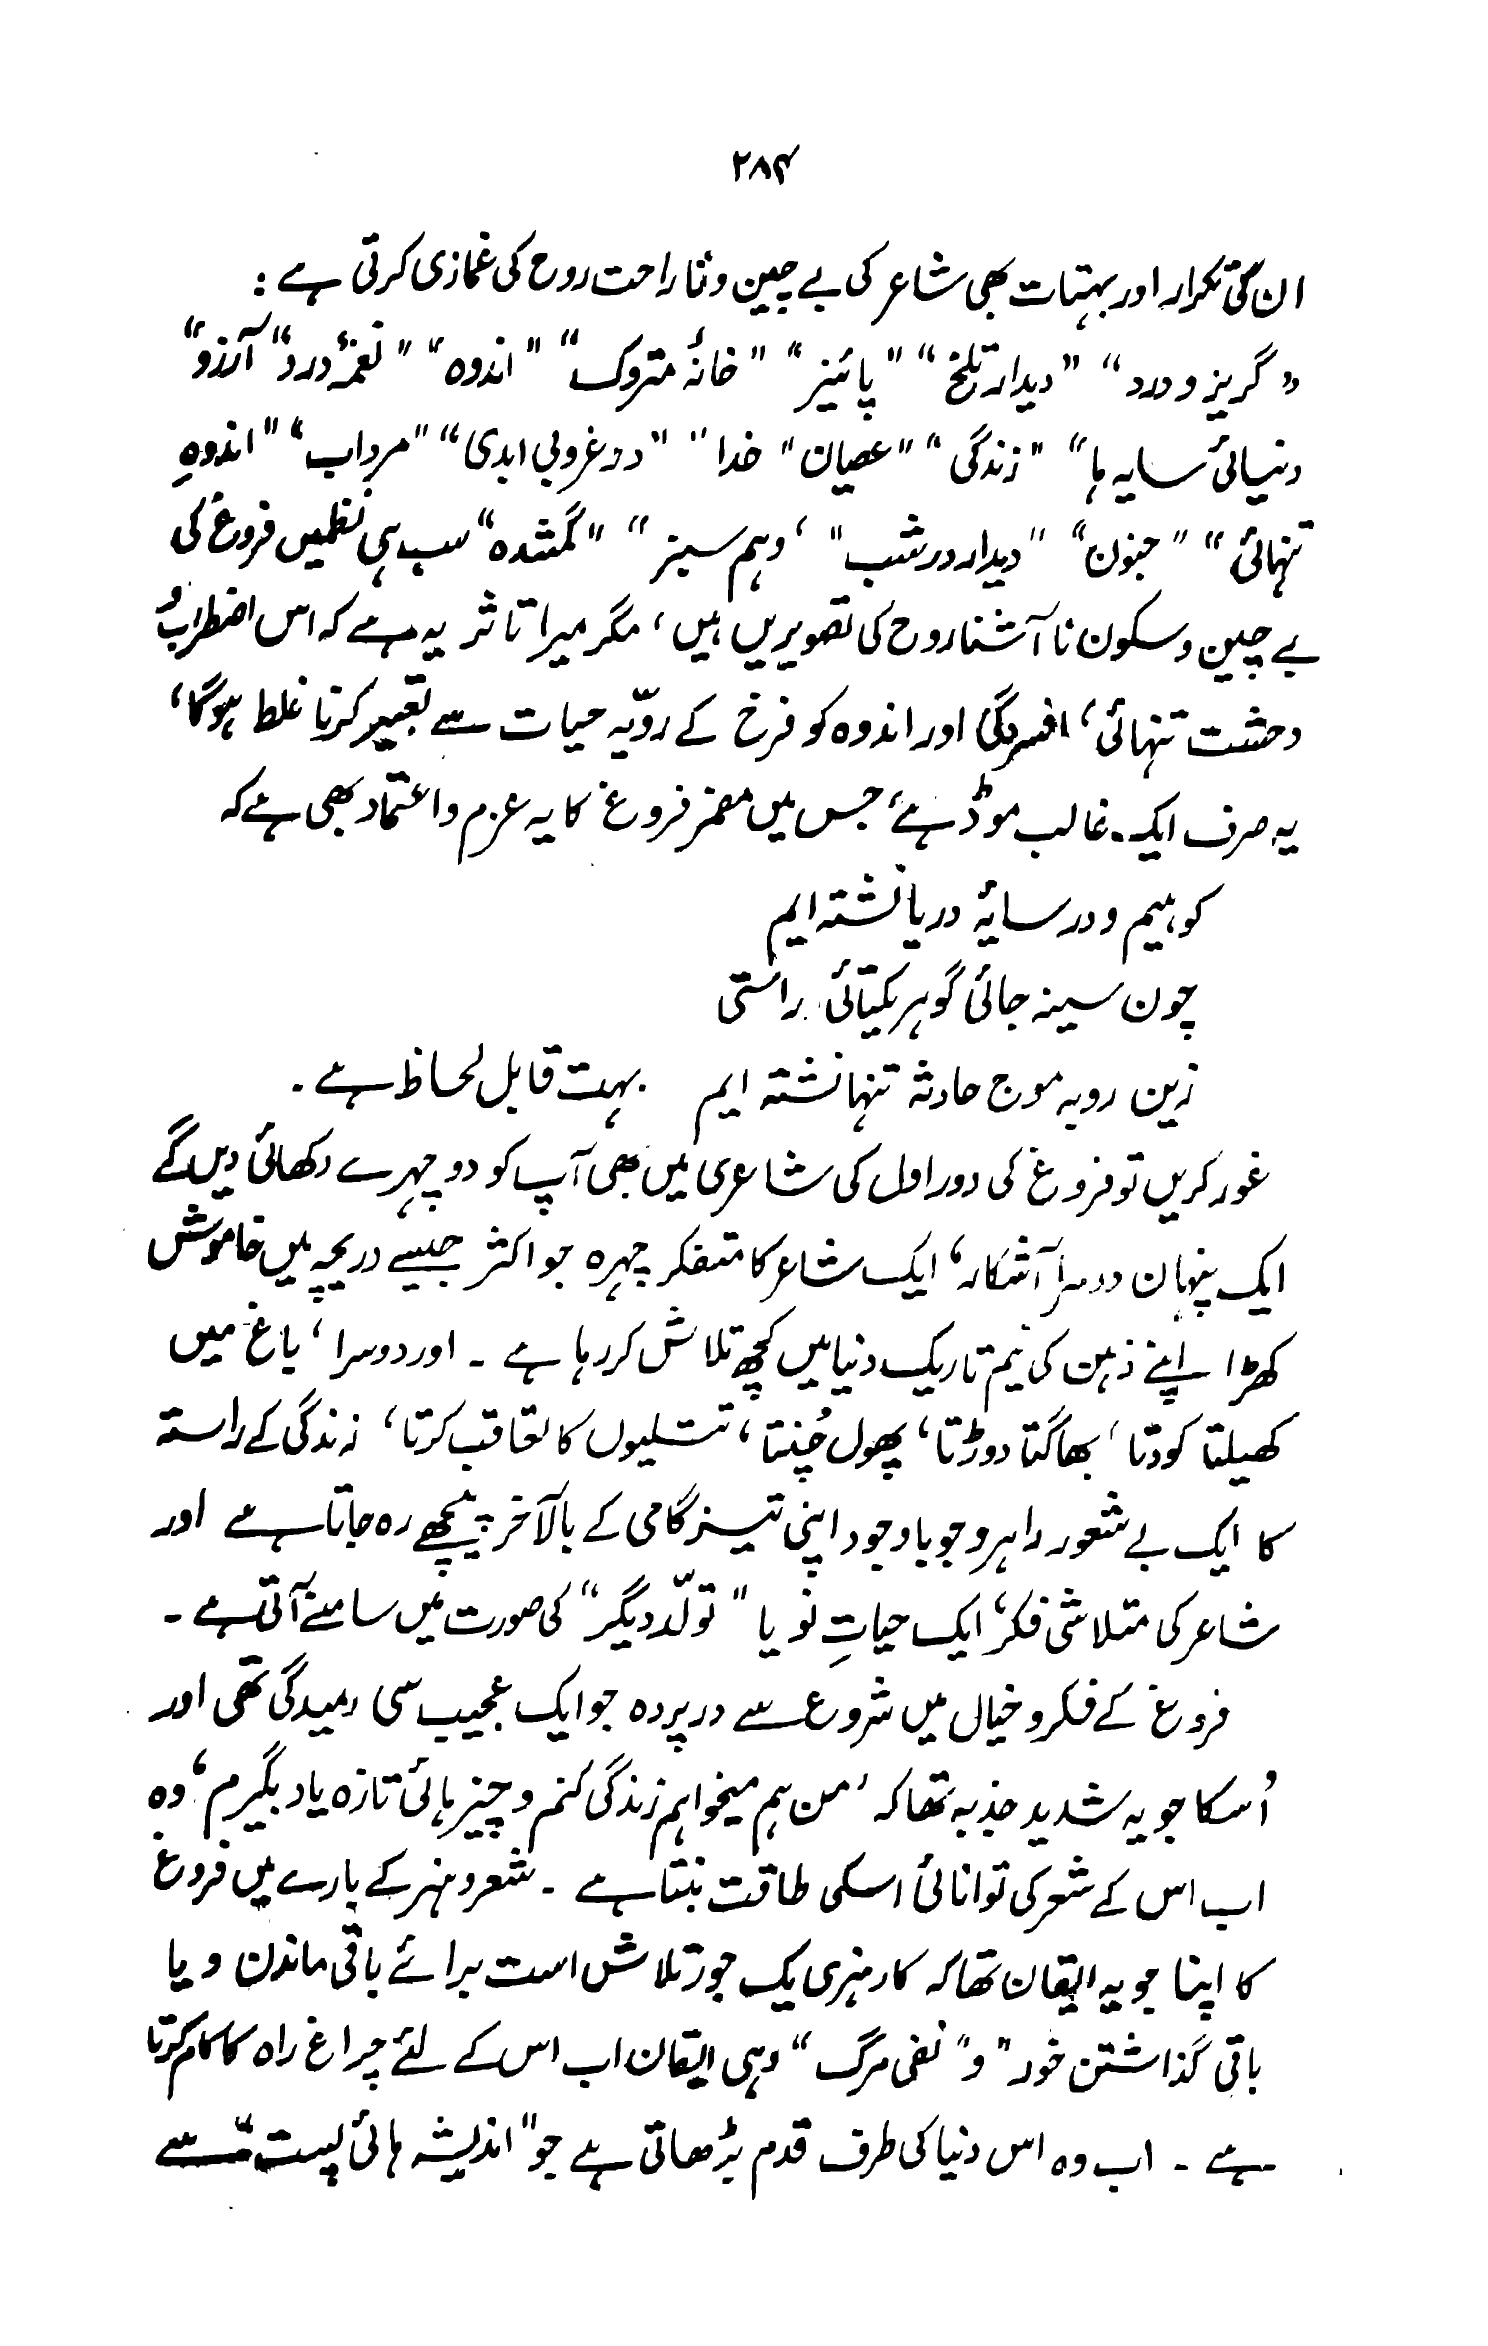 ۲۸۴
ان کی تکرار اور بہتات بھی شاعر کی بے چین و نا راحت روح کی غمازی کرتی ہے :
" گریز و درد " " دیدار تلخ " " پائیز " " خانۂ متروک " " اندوہ " " نغمۂ درد " آرزو "
دنیائی سایہ ہا " " زندگی " " عصیان " خدا " " در غروبی ابدی " " مرداب " " اندوہِ
تنہائی " " جنون " " دیدار در شب " ' وہم سبز " " گمشدہ " سب ہی نظمیں فروغ کی
بے چین و سکون نا آشنا روح کی تصویریں ہیں ، مگر میرا تاثر یہ ہے کہ اس اضطراب و
وحشت تنہائی ، افسردگی اور اندوہ کو فرخ کے رویّہ حیات سے تعبیر کرنا غلط ہوگا ،
یہ صرف ایک غالب موڈ ہے ، جس میں مضمر فروغ کا یہ عزم و اعتماد بھی ہے کہ
کوہیم و در سایۂ دریا نشتہ ایم
چون سینہ جائی گوہر یکتائی راستی
زین رو بہ موج حادثہ تنہا نشتہ ایم بہت قابل لحاظ ہے ۔
غور کریں تو فروغ کی دور اول کی شاعری میں بھی آپ کو دو چہرے دکھائی دیں گے
ایک پنہان دوسرا آشکار ، ایک شاعر کا متفکر چہرہ جو اکثر جیسے دریچہ میں خاموش
کھڑا اپنے ذہن کی نیم تاریک دنیا میں کچھ تلاش کر رہا ہے ۔ اور دوسرا ، باغ میں
کھیلتا کودتا ، بھاگتا دوڑتا ، پھول چُنتا ، تتلیوں کا تعاقب کرتا ، زندگی کے راستہ
کا ایک بے شعور راہرو جو باوجود اپنی تیز گامی کے بالآخر پیچھے رہ جاتا ہے اور
شاعر کی متلاشی فکر ، ایک حیاتِ نو یا " تولّد دیگر " کی صورت میں سامنے آتی ہے ۔
فروغ کے فکر و خیال میں شروع سے در پردہ جو ایک عجیب سی رمیدگی تھی اور
اُسکا جو یہ شدید جذبہ تھا کہ ' من ہم میخواہم زندگی کنم و چیز ہائی تازہ یاد بگیرم ' وہ
اب اس کے شعر کی توانائی اسکی طاقت بنتا ہے ۔ شعر و ہنر کے بارے میں فروغ
کا اپنا جو یہ ایقان تھا کہ کار ہنری یک جور تلاش است برائے باقی ماندن و یا
باقی گذاشتن خود " و " نفی مرگ " وہی ایقان اب اس کے لئے چراغ راہ کا کام کرتا
ہے ۔ اب وہ اس دنیا کی طرف قدم بڑھاتی ہے جو " اندیشہ ہائی پست " سے